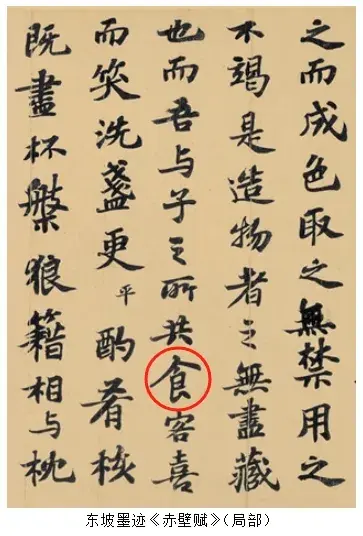 之而成色取之無禁用之
不竭是造物者之無盡藏
也而吾与子之所共食客喜
而笑洗盞更平酌肴核
既盡杯槃狼籍相与枕
东坡墨迹《赤壁赋》(局部)